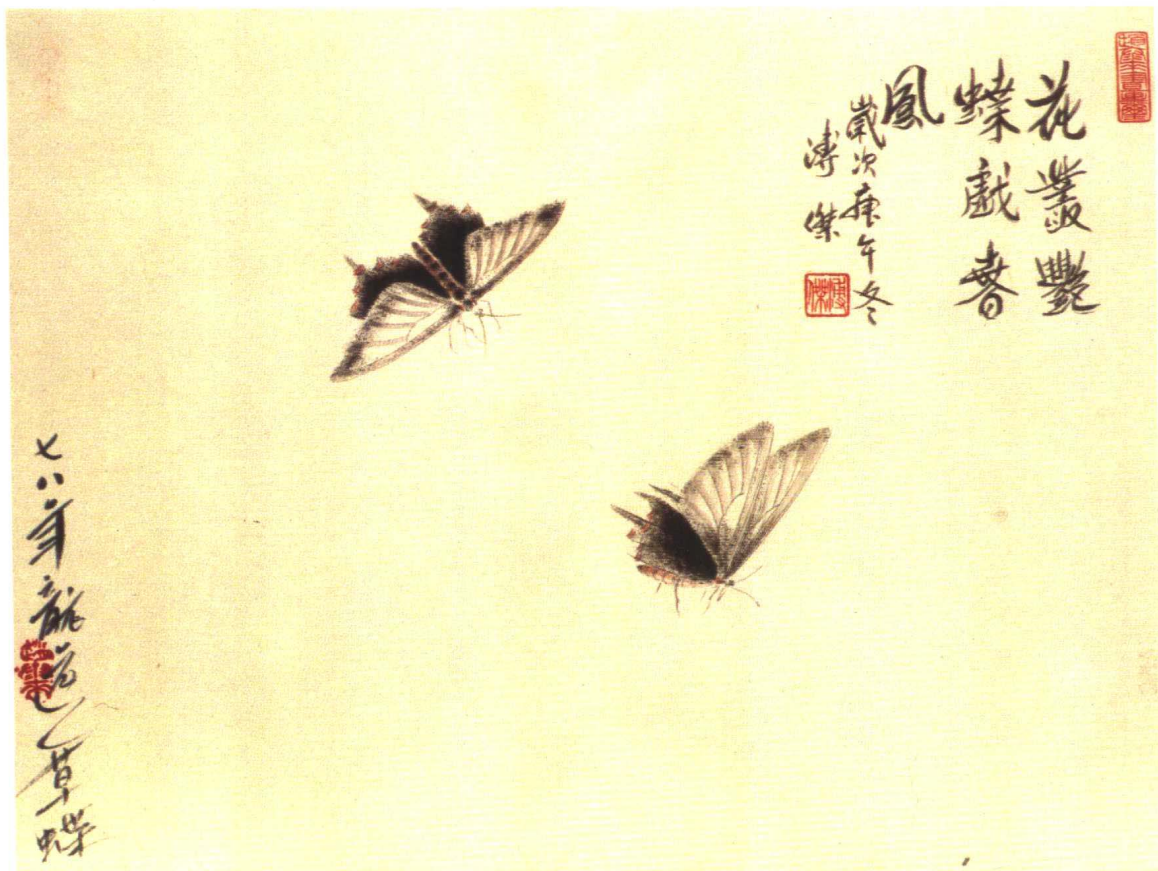 花叢艷
蝶戲春
風
歲次庚午冬
溥傑
溥傑
七八年龍
草蝶